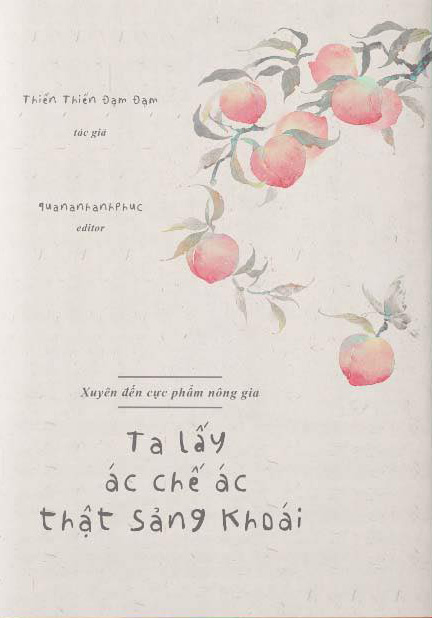 Thiển Thiển Đạm Đạm
tác giả
quananhanhphuc
editor
Xuyên đến cực phẩm nông gia
Ta lấy
ác chế ác
thật sảng khoái